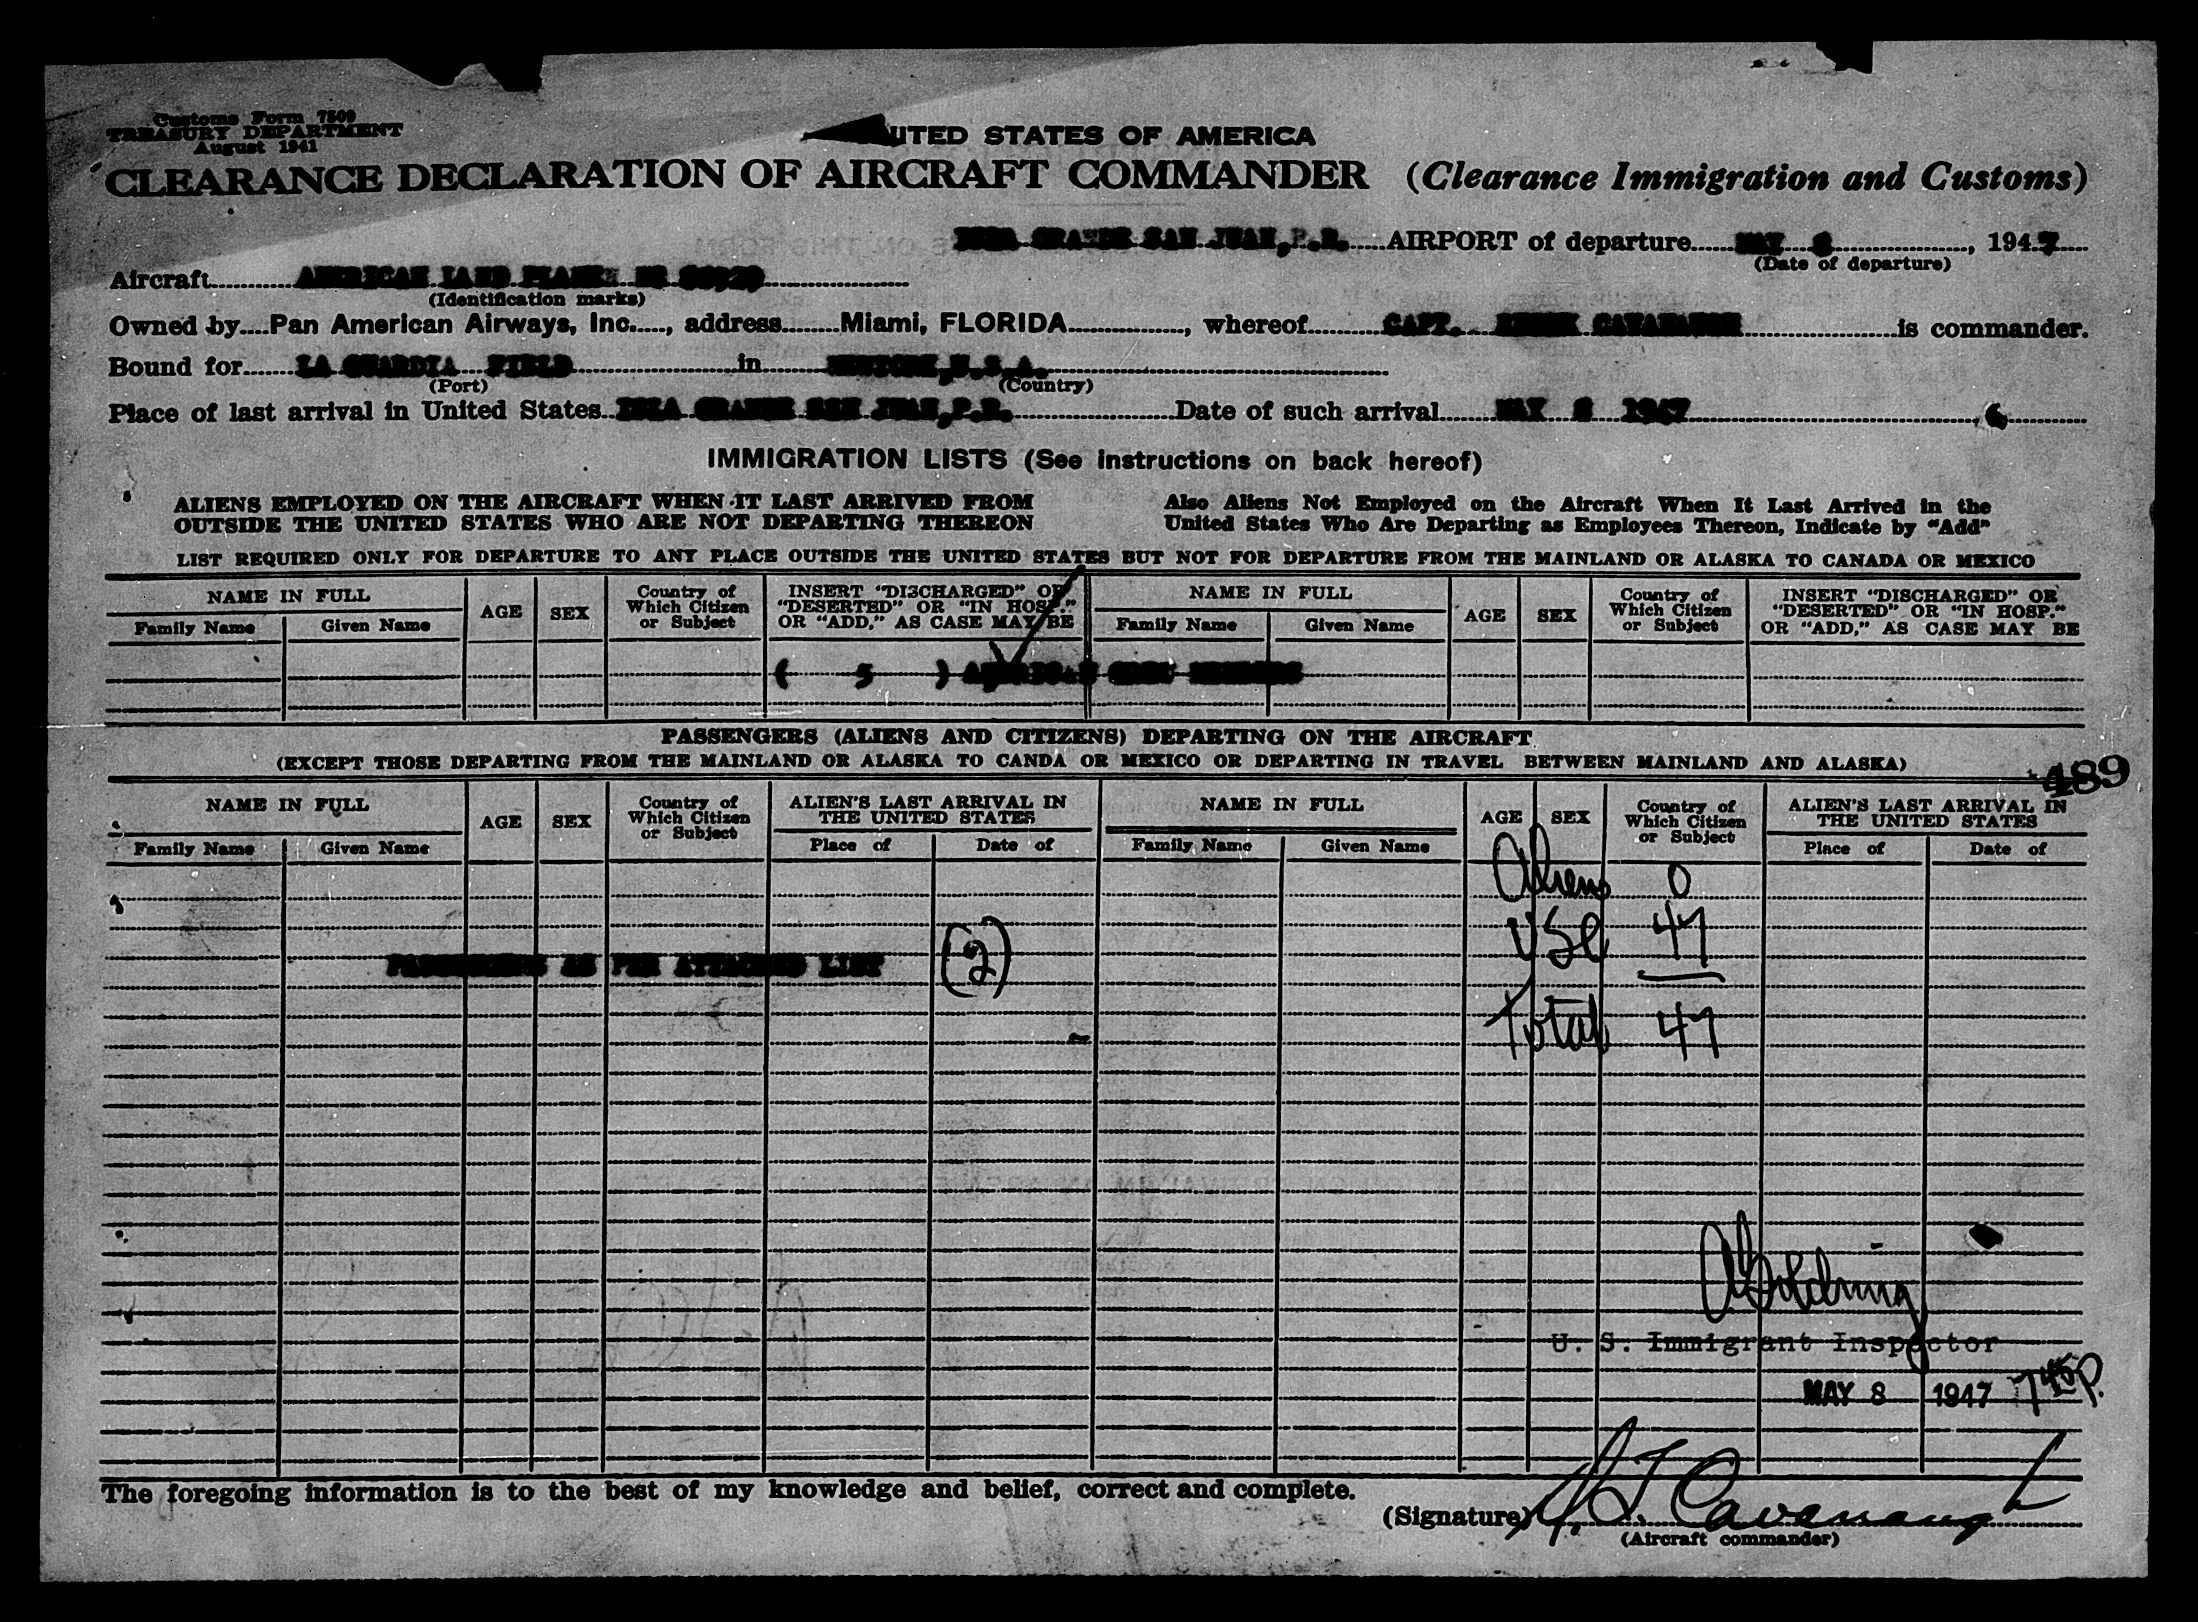 Customs Form 7509
TREASURY DEPARTMENT
August 1941
UITED STATES OF AMERICA
CLEARANCE DECLARATION OF AIRCRAFT COMMANDER (Clearance Immigration and Customs)
GRANDE SAN JUAN, P.R. AIRPORT of departure MAY 8, 1947
(Date of departure)
Aircraft AMERICAN LAND PLANE
(Identification marks)
Owned by Pan American Airways, Inc., address Miami, FLORIDA, whereof CAPT. CAVANAUGH is commander.
Bound for LA GUARDIA FIELD in U.S.A.
(Port) (Country)
Place of last arrival in United States ISLA GRANDE SAN JUAN, P.R. Date of such arrival MAY 8 1947
IMMIGRATION LISTS (See instructions on back hereof)
ALIENS EMPLOYED ON THE AIRCRAFT WHEN IT LAST ARRIVED FROM
OUTSIDE THE UNITED STATES WHO ARE NOT DEPARTING THEREON
Also Aliens Not Employed on the Aircraft When It Last Arrived in the
United States Who Are Departing as Employees Thereon, Indicate by "Add"
LIST REQUIRED ONLY FOR DEPARTURE TO ANY PLACE OUTSIDE THE UNITED STATES BUT NOT FOR DEPARTURE FROM THE MAINLAND OR ALASKA TO CANADA OR MEXICO
NAME IN FULL
Family Name Given Name
AGE
SEX
Country of
Which Citizen
or Subject
INSERT "DISCHARGED" OR
"DESERTED" OR "IN HOSP."
OR "ADD," AS CASE MAY BE
NAME IN FULL
Family Name Given Name
AGE
SEX
Country of
Which Citizen
or Subject
INSERT "DISCHARGED" OR
"DESERTED" OR "IN HOSP."
OR "ADD," AS CASE MAY BE
( 5 ) AMERICAN CREW MEMBERS
PASSENGERS (ALIENS AND CITIZENS) DEPARTING ON THE AIRCRAFT
(EXCEPT THOSE DEPARTING FROM THE MAINLAND OR ALASKA TO CANDA OR MEXICO OR DEPARTING IN TRAVEL BETWEEN MAINLAND AND ALASKA)
489
NAME IN FULL
Family Name Given Name
AGE
SEX
Country of
Which Citizen
or Subject
ALIEN'S LAST ARRIVAL IN
THE UNITED STATES
Place of Date of
NAME IN FULL
Family Name Given Name
AGE
SEX
Country of
Which Citizen
or Subject
ALIEN'S LAST ARRIVAL IN
THE UNITED STATES
Place of Date of
Aliens 0
USC 47
PASSENGERS AS PER ATTACHED LIST (2)
Total 47
U. S. Immigrant Inspector
MAY 8 1947 7 45 P.
The foregoing information is to the best of my knowledge and belief, correct and complete.
(Signature) Cavanaugh
(Aircraft commander)